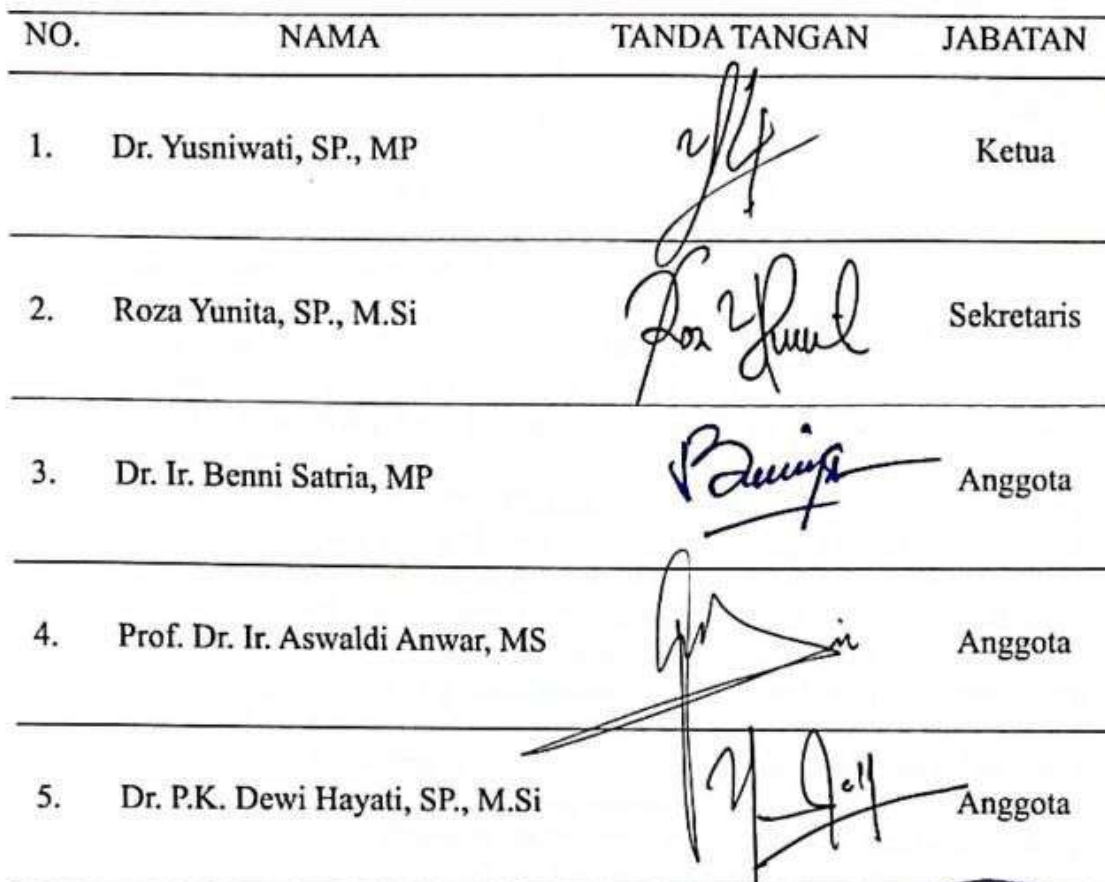 NO. NAMA TANDA TANGAN JABATAN
1. Dr. Yusniwati, SP., MP Ketua
2. Roza Yunita, SP., M.Si Sekretaris
3. Dr. Ir. Benni Satria, MP Anggota
4. Prof. Dr. Ir. Aswaldi Anwar, MS Anggota
5. Dr. P.K. Dewi Hayati, SP., M.Si Anggota